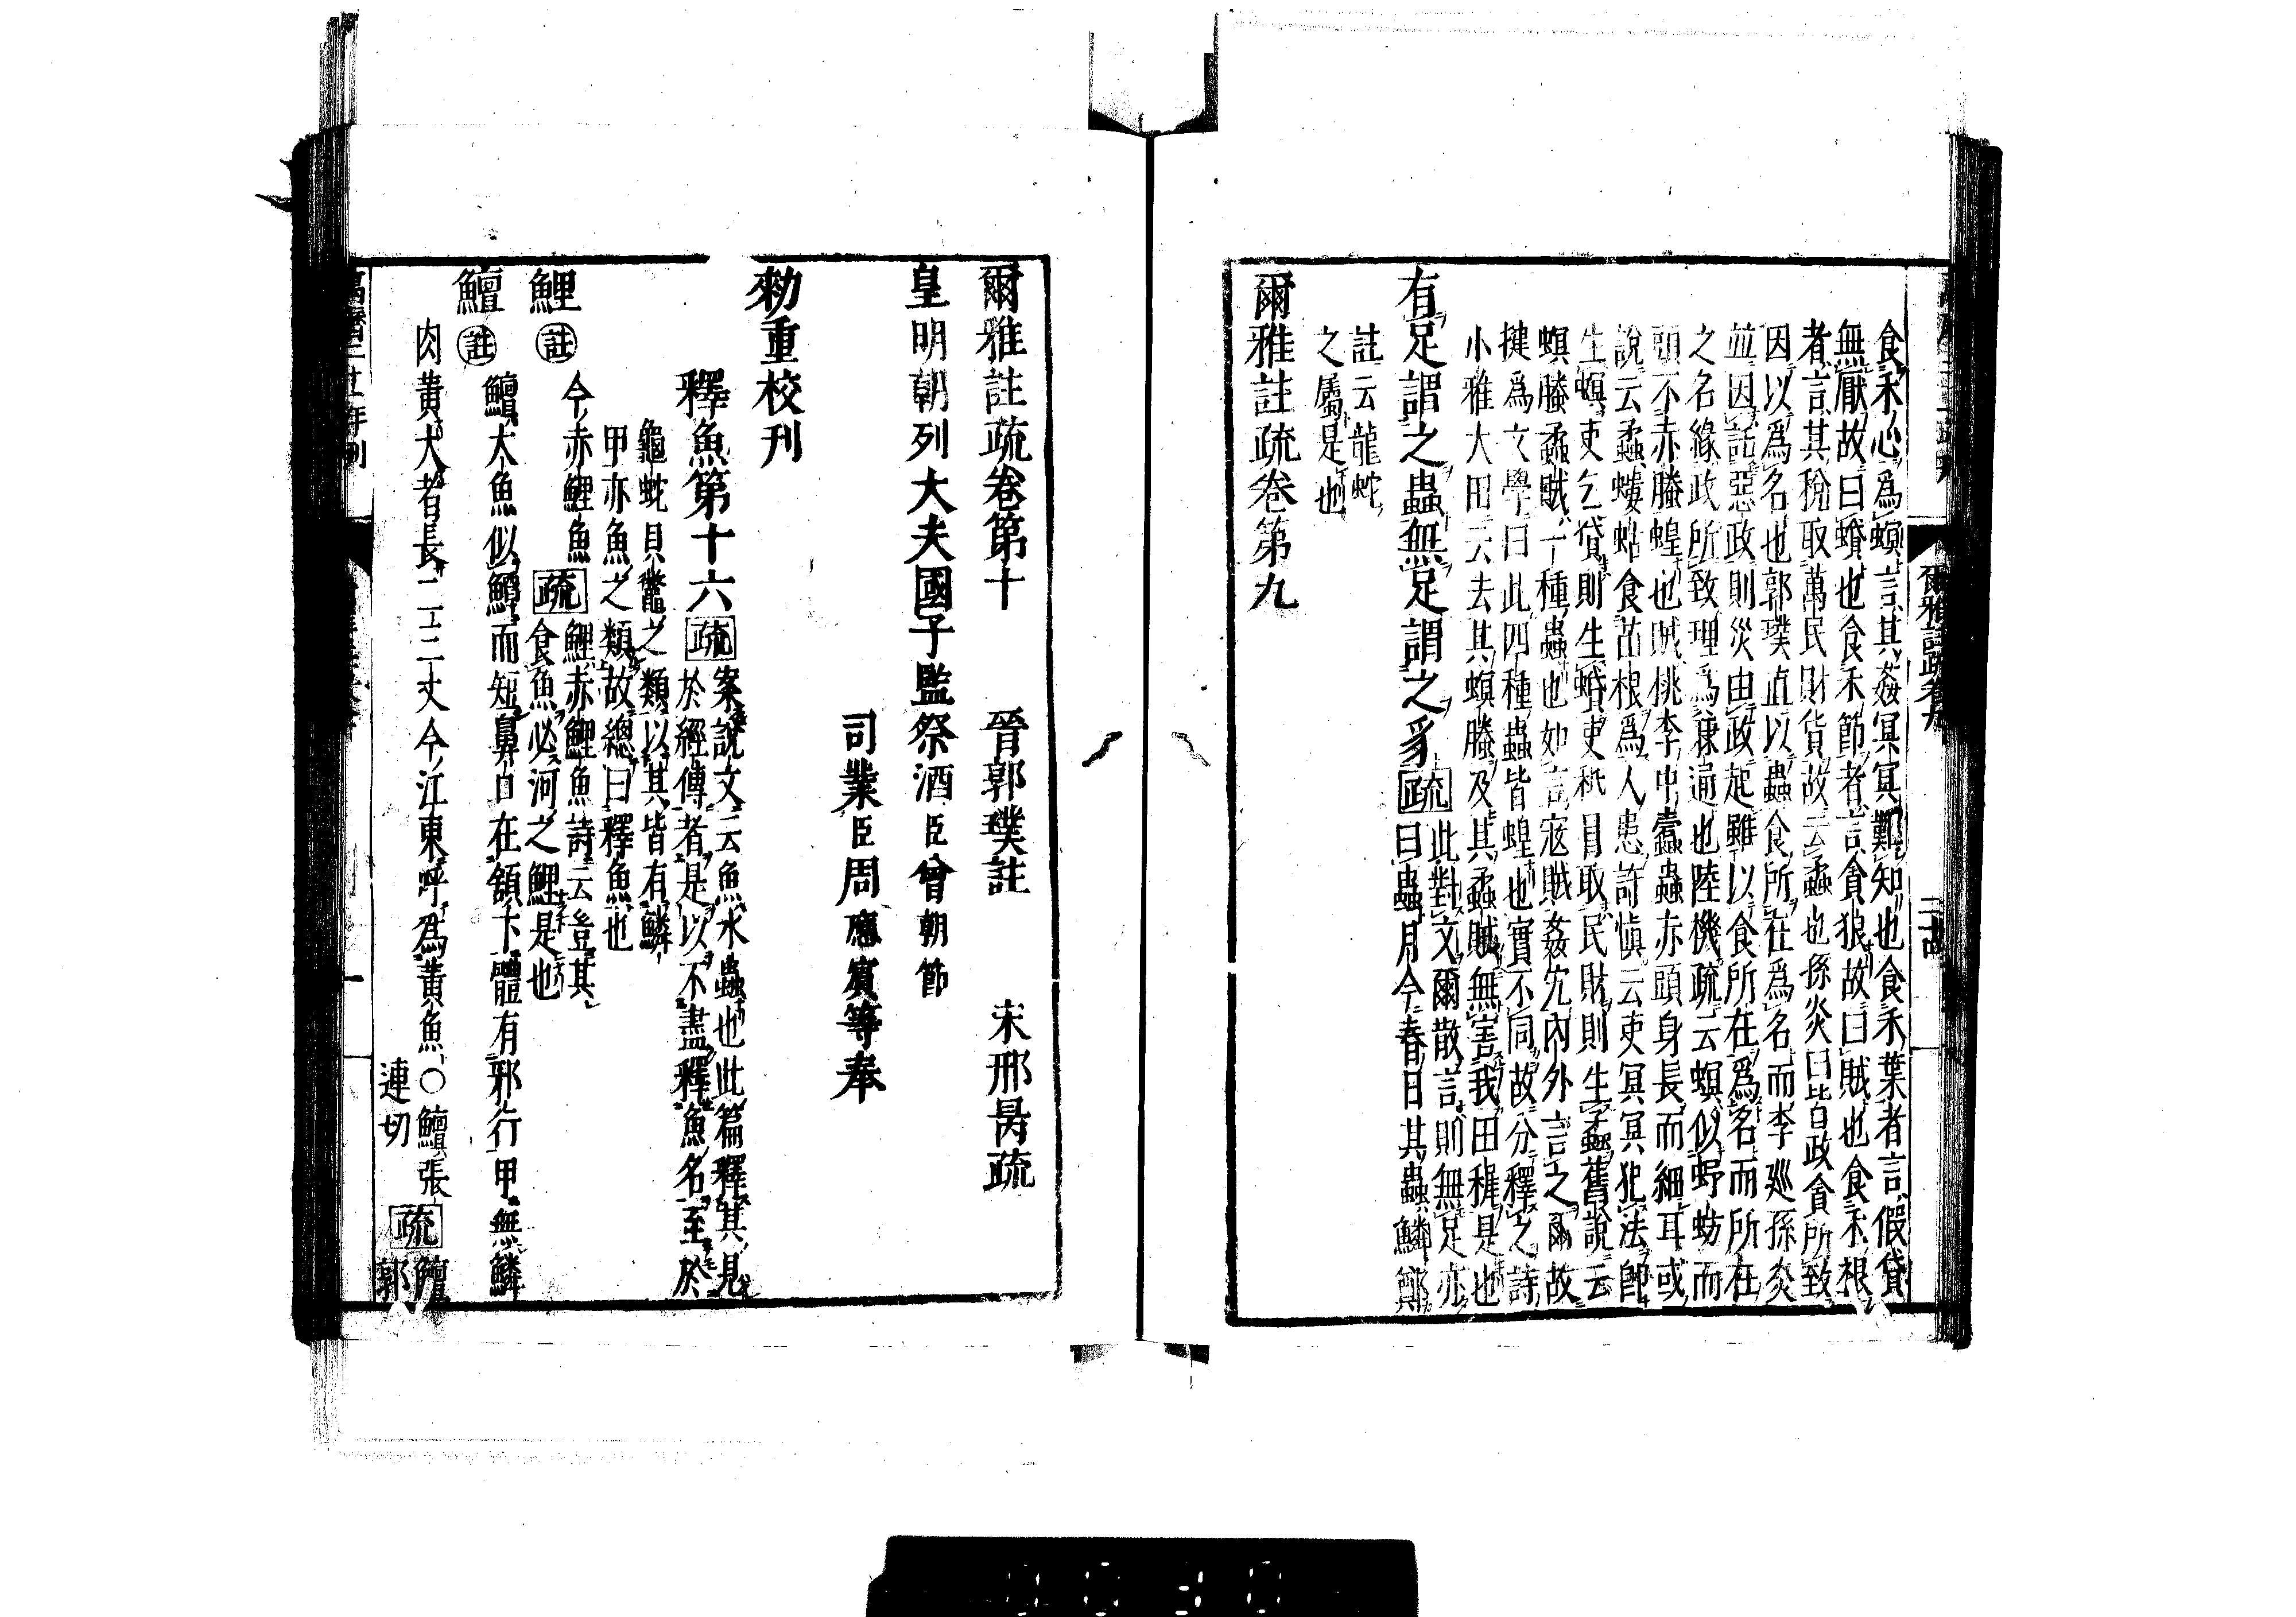 食禾心爲螟言其姦冥冥難知也食禾葉者言假貸
無厭故曰蟘也食禾節者言貪狼故曰賊也食禾根
者言其稅取萬民財貨故云蟊也孫炎曰皆政貪所致
因以爲名也郭璞直以蟲食所在爲名而李巡孫炎
並因託惡政則災由政起雖以食所在爲名而所在
之名緣政所致理爲兼通也陸機疏云螟似虸蚄而
頭不赤螣蝗也賊桃李中蠹蟲赤頭身長而細耳或
說云蟊螻蛄食苗根爲人患許愼云吏冥冥犯法卽
生螟吏乞貸則生蟘吏秖冒取民財則生蟊舊說云
螟螣蟊賊一種蟲也如言寇賊姦宄內外言之爾故
揵爲文學曰此四種蟲皆蝗也實不同故分釋之詩
小雅大田云去其螟螣及其蟊賊無害我田穉是也
有足謂之蟲無足謂之豸疏此對文爾散言則無足亦
曰蟲月令春日其蟲鱗鄭
註云龍蛇
之屬是也
爾雅註疏卷第九
爾雅註疏卷九
爾雅註疏卷第十 晉郭璞註 宋邢昺疏
皇明朝列大夫國子監祭酒臣曾朝節
司業臣周應賓等奉
勑重校刊
釋魚第十六疏案說文云魚水蟲也此篇釋其見
於經傳者是以不盡釋魚名至於
龜蛇貝鱉之類以其皆有鱗
甲亦魚之類故總曰釋魚也
鯉註今赤鯉魚疏鯉赤鯉魚詩云豈其
食魚必河之鯉是也
鱣註鱣大魚似鱏而短鼻口在頷下體有邪行甲無鱗
肉黃大者長二三丈今江東呼爲黃魚○鱣張
連切疏鱣
郭